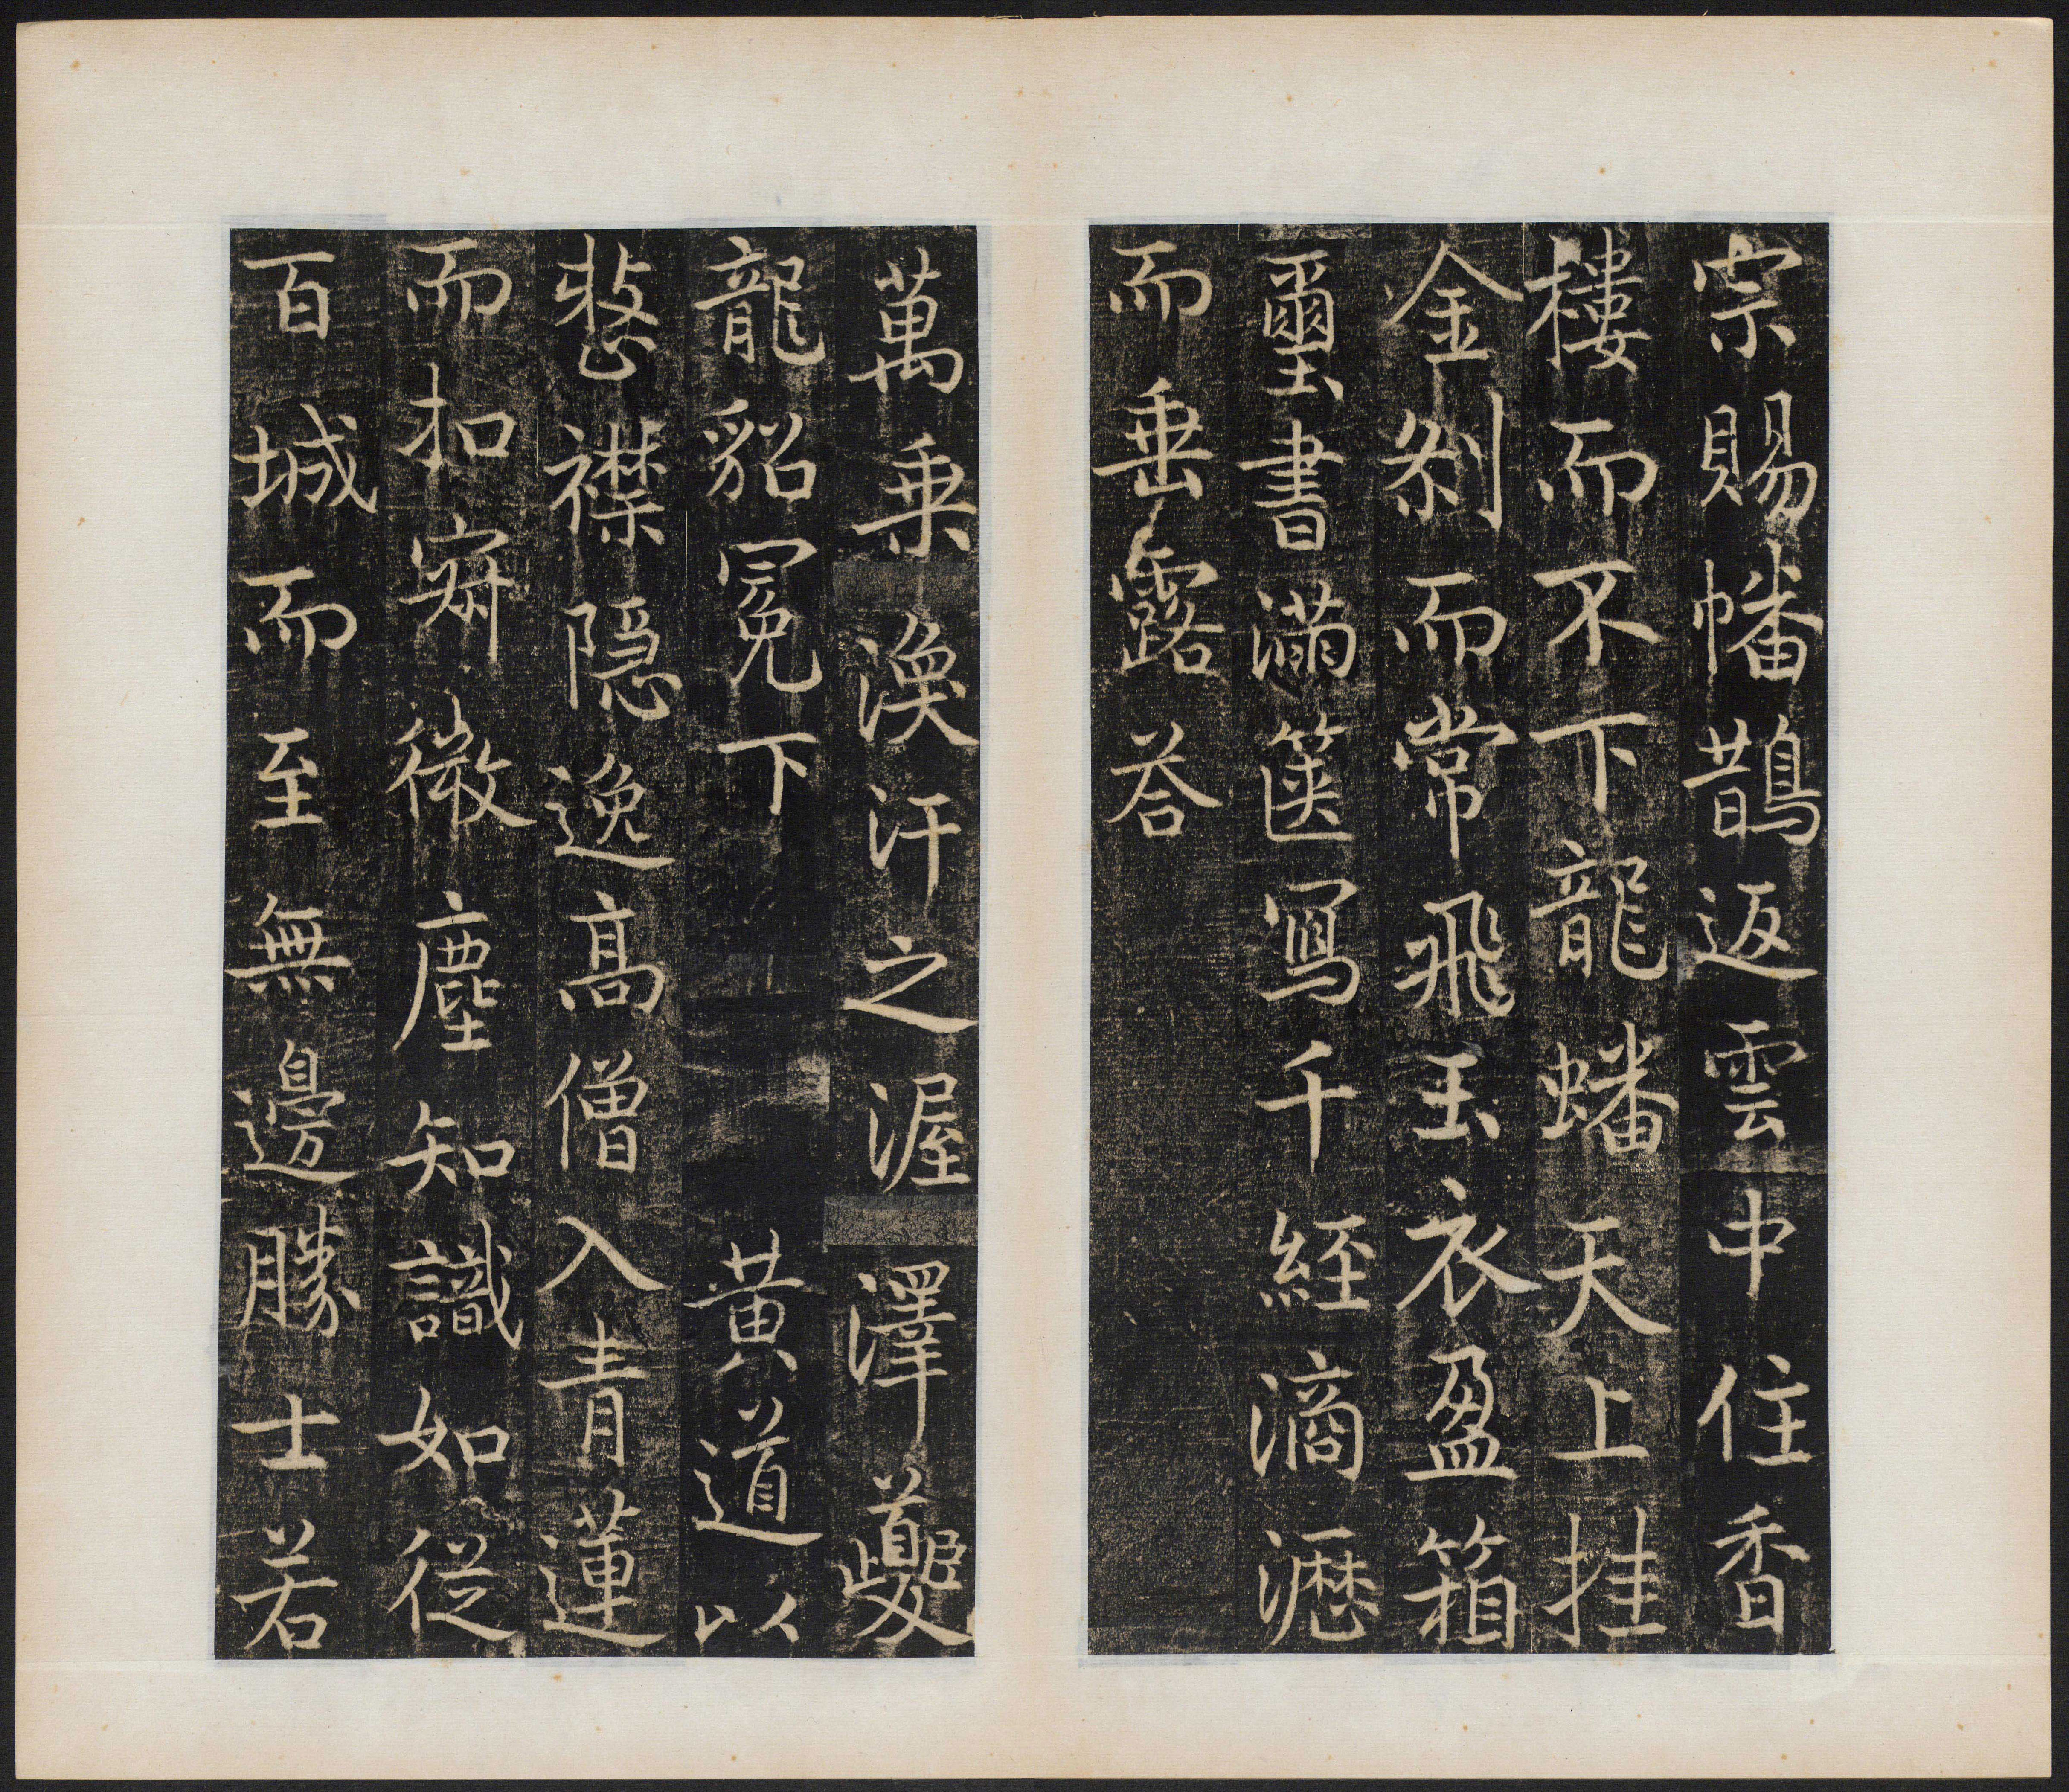 宗賜幡鵲返雲中住香
樓而不下龍蟠天上挂
金刹而常飛玉衣盈箱
璽書滿篋寫千經滴瀝
而垂露荅
萬乗渙汗之渥澤夔
龍貂冕下黃道以
整襟隠逸髙僧入青蓮
而扣寂微塵知識如從
百城而至無邊勝士若